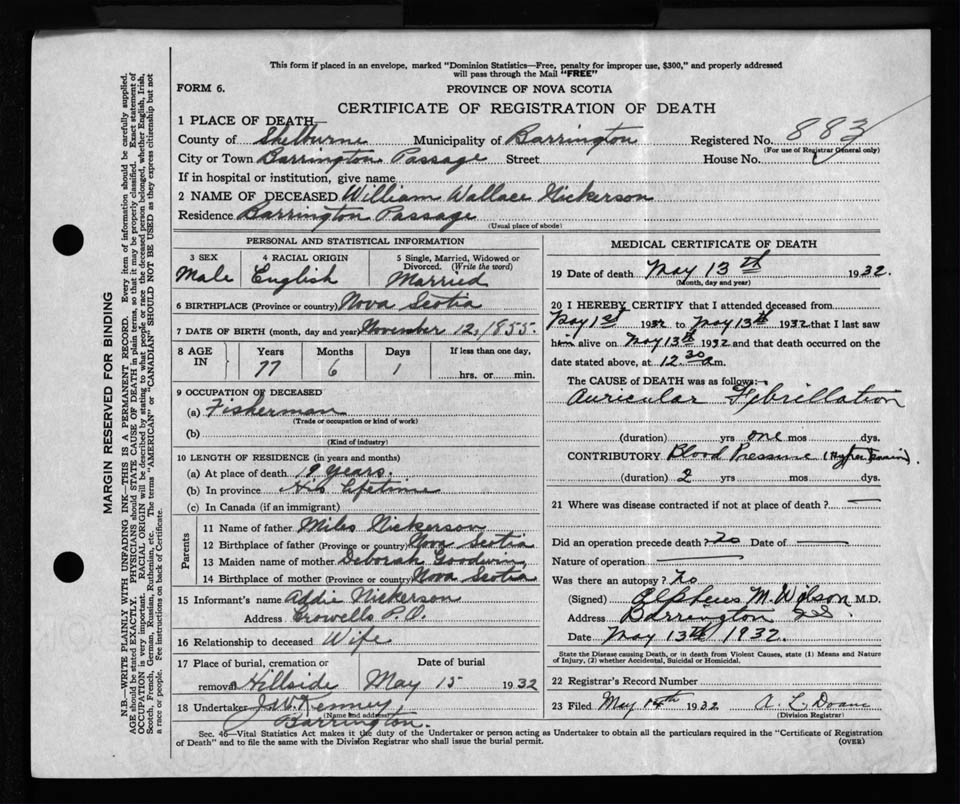 This form if placed in an envelope, marked "Dominion Statistics—Free, penalty for improper use, $300," and properly addressed
will pass through the Mail "FREE"
FORM 6.
PROVINCE OF NOVA SCOTIA
CERTIFICATE OF REGISTRATION OF DEATH
1 PLACE OF DEATH—
County of Shelburne Municipality of Barrington Registered No. 883
(For use of Registrar General only)
City or Town Barrington Passage Street House No.
If in hospital or institution, give name
2 NAME OF DECEASED William Wallace Nickerson
Residence Barrington Passage
(Usual place of abode)
PERSONAL AND STATISTICAL INFORMATION
3 SEX 4 RACIAL ORIGIN 5 Single, Married, Widowed or
Divorced. (Write the word)
Male English Married
6 BIRTHPLACE (Province or country) Nova Scotia
7 DATE OF BIRTH (month, day and year) November 12, 1855.
8 AGE IN Years Months Days If less than one day,
77 6 1 hrs. or min.
9 OCCUPATION OF DECEASED
(a) Fisherman
(Trade or occupation or kind of work)
(b)
(Kind of industry)
10 LENGTH OF RESIDENCE (in years and months)
(a) At place of death 19 years.
(b) In province His lifetime
(c) In Canada (if an immigrant)
Parents
11 Name of father Miles Nickerson
12 Birthplace of father (Province or country) Nova Scotia
13 Maiden name of mother Deborah Goodwin
14 Birthplace of mother (Province or country) Nova Scotia
15 Informant's name Addie Nickerson
Address Crowells P.O.
16 Relationship to deceased Wife
17 Place of burial, cremation or Date of burial
removal Hillside May 15 1932
18 Undertaker J. W. Kenney,
(Name and address)
Barrington.
MEDICAL CERTIFICATE OF DEATH
19 Date of death May 13th 1932.
(Month, day and year)
20 I HEREBY CERTIFY that I attended deceased from
May 1st 1932 to May 13th 1932 that I last saw
him alive on May 13th 1932 and that death occurred on the
date stated above, at 12.30 a.m.
The CAUSE OF DEATH was as follows:—
Auricular Fibrillation
(duration) yrs one mos dys.
CONTRIBUTORY Blood Pressure
(duration) 2 yrs mos dys.
21 Where was disease contracted if not at place of death? —
Did an operation precede death? No Date of —
Nature of operation —
Was there an autopsy? No
(Signed) Alpheus M. Wilson M.D.
Address Barrington
Date May 13th 1932.
State the Disease causing Death, or in death from Violent Causes, state (1) Means and Nature
of Injury, (2) whether Accidental, Suicidal or Homicidal.
22 Registrar's Record Number
23 Filed May 14th 1932 A. L. Doane
(Division Registrar)
Sec. 46—Vital Statistics Act makes it the duty of the Undertaker or person acting as Undertaker to obtain all the particulars required in the "Certificate of Registration
of Death" and to file the same with the Division Registrar who shall issue the burial permit.
(OVER)
MARGIN RESERVED FOR BINDING
N.B.—WRITE PLAINLY WITH UNFADING INK—THIS IS A PERMANENT RECORD. Every item of information should be carefully supplied.
AGE should be stated EXACTLY. PHYSICIANS should STATE CAUSE OF DEATH in plain terms, so that it may be properly classified. Exact statement of
OCCUPATION is very important. RACIAL ORIGIN will be described by stating to what people or race the deceased person belonged, whether English, Irish,
Scotch, French, German, Russian, Ruthenian, etc. The terms "AMERICAN" or "CANADIAN" SHOULD NOT BE USED as they express citizenship but not
a race or people. Fee instructions on back of Certificate.